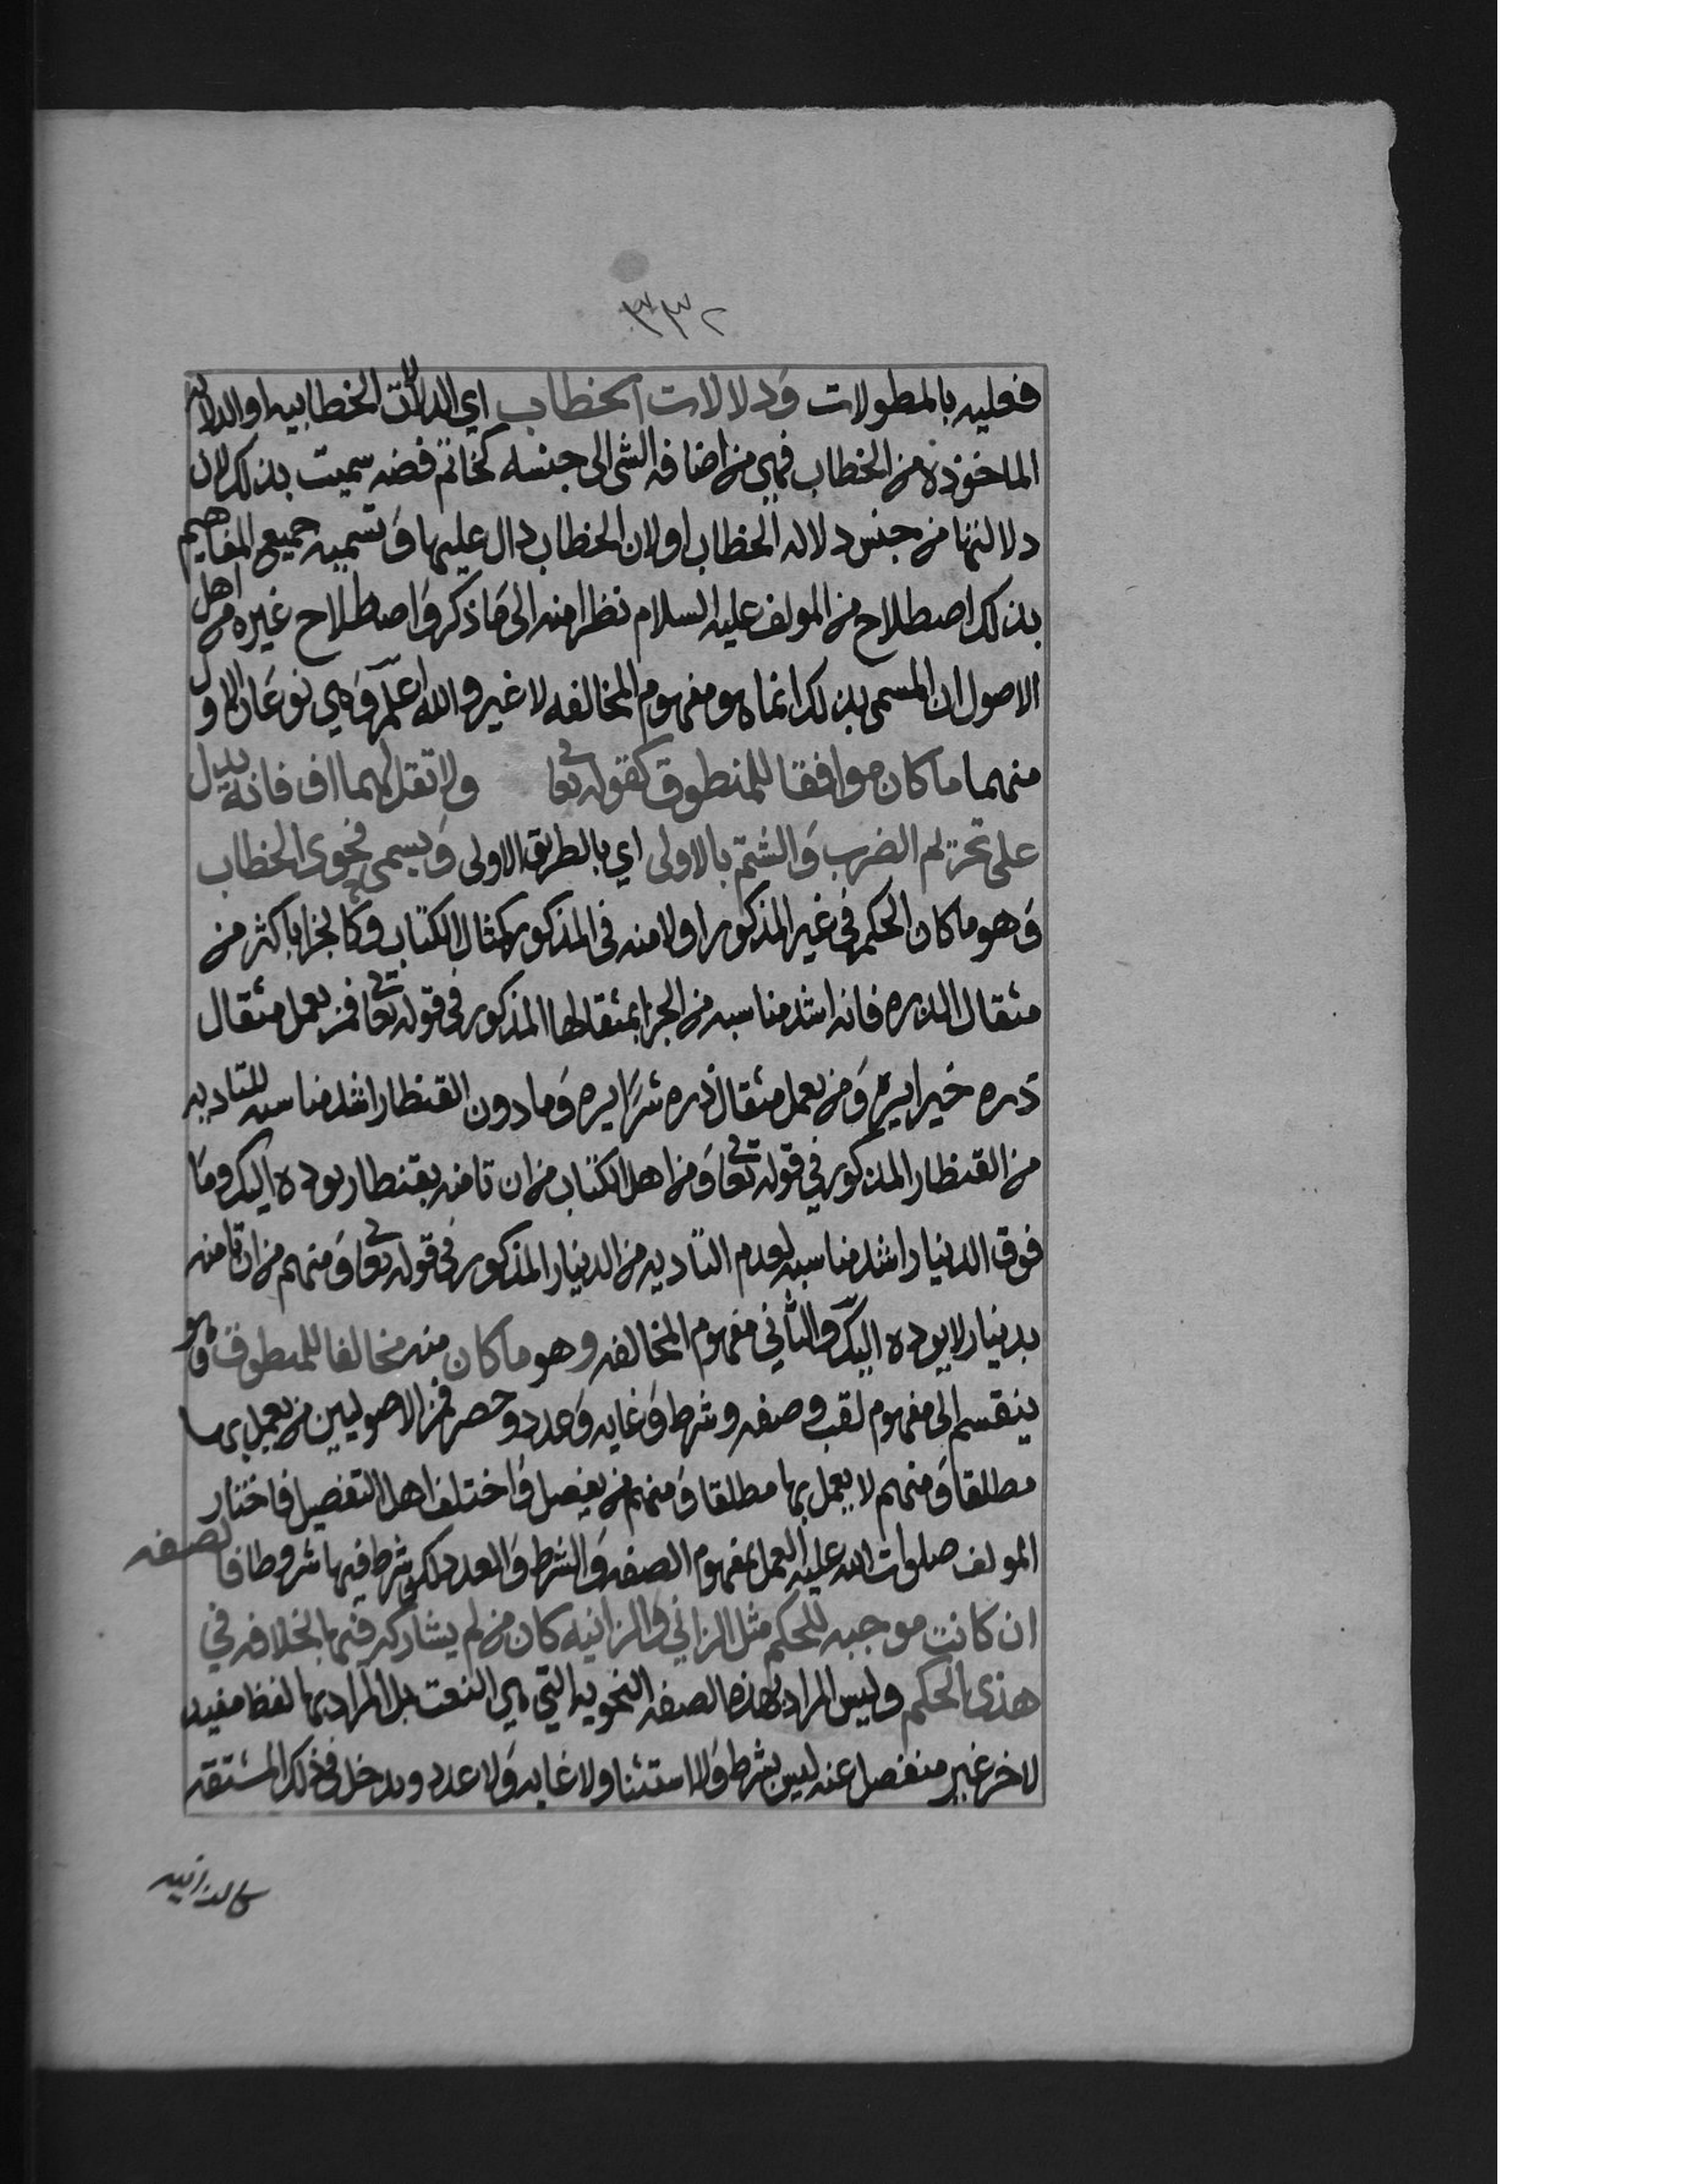 ٣٣٢
فعليه بالمطولات ودلالات الخطاب اي الدلالات الخطابيه او الدلاله
الماخوذه من الخطاب فهي من اضافه الشي الى جنسه كخاتم فضه سميت بذلك لان
دلالتها من جنس دلاله الخطاب او لان الخطاب دال عليها وتسميه جميع المفاهيم
بذلك اصطلاح من المولف عليه السلام نظرا منه الى ما ذكر واصطلاح غيره من اهل
الاصول ان المسمى بذلك انما هو مفهوم المخالفه لا غير والله اعلم وهي نوعان الاول
منهما ما كان موافقا للمنطوق كقوله تعالى ولا تقل لهما اف فانه يدل
على تحريم الضرب والشتم بالاولى اي بالطريق الاولى ويسمى فحوى الخطاب
وهو ما كان الحكم في غير المذكور اولا منه في المذكور كمثال الكتاب وكالجزا باكثر من
مثقال الذره فانه اشد مناسبه من الجزا بمثقالها المذكور في قوله تعالى فمن يعمل مثقال
ذره خيرا يره ومن يعمل مثقال ذره شرا يره وما دون القنطار اشد مناسبه للتاديه
من القنطار المذكور في قوله تعالى ومن اهل الكتاب من ان تامنه بقنطار يوده اليك وما
فوق الدينار اشد مناسبه لعدم التاديه من الدينار المذكور في قوله تعالى ومنهم من ان تامنه
بدينار لا يوده اليك والثاني مفهوم المخالفه وهو ما كان منه مخالفا للمنطوق وهو
ينقسم الى مفهوم لقب وصفه وشرط وغايه وعدد وحصر فمن الاصوليين من يعمل بها
مطلقا ومنهم لا يعمل بها مطلقا ومنهم من يفصل واختلف اهل التفصيل فاختار
المولف صلوات الله عليه العمل بمفهوم الصفه والشرط والعدد لكن شرط فيها شروطا فالصفه
ان كانت موجبه للحكم مثل الزاني والزانيه كان من لم يشاركه فيها بخلافه في
هذى الحكم وليس المراد بهذه الصفه النحويه التي هي النعت بل المراد بها لفظ مفيد
لاخر غير منفصل عنه ليس بشرط ولا استثنا ولا غايه ولا عدد ويدخل في ذلك المشتقه
كالزانيه